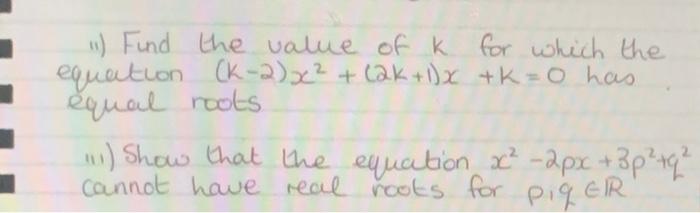 ii) Find the value of k for which the
equation (k-2)x² + (2k+1)x + k = 0 has
equal roots
iii) Show that the equation x² - 2px + 3p² + q²
cannot have real roots for p, q ∈ ℝ